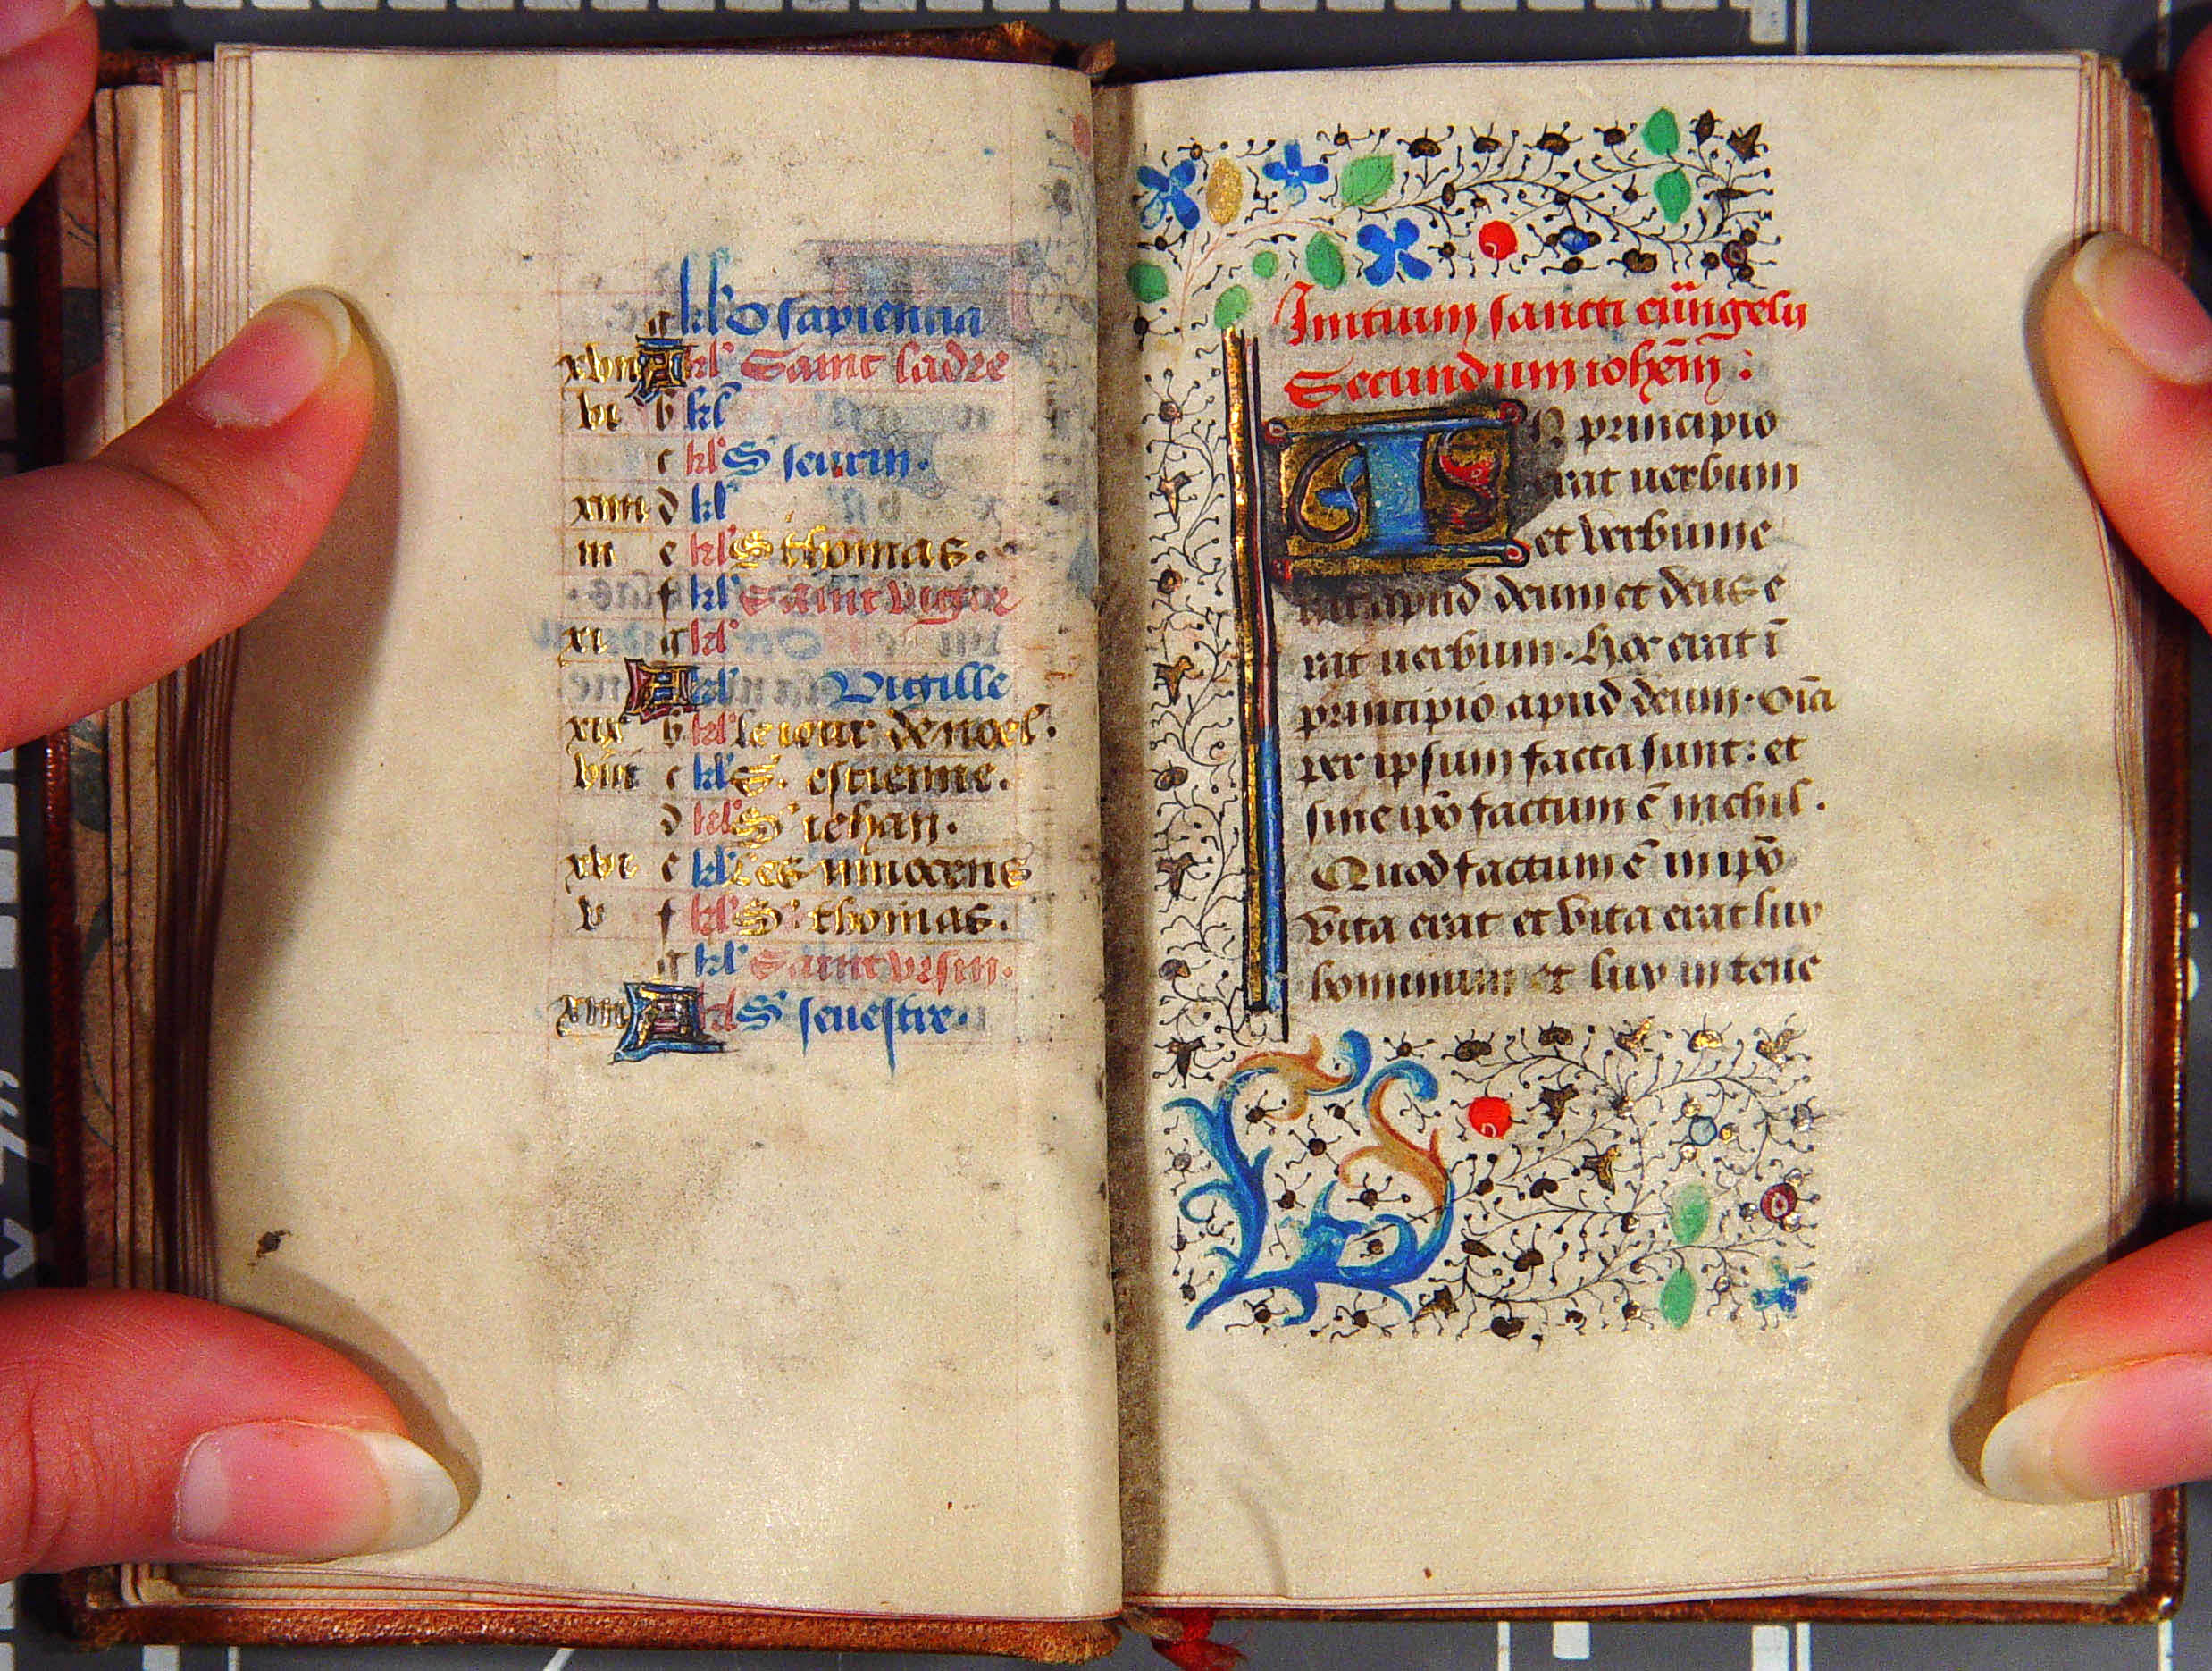 g kl' O sapiencia
xvii A kl' Sainc ladre
vi b kl'
c kl' S' seurin.
xiiii d kl'
iii e kl' S' thomas.
f kl' Sainc victor
xi g kl'
A kl' Vigille
xix b kl' le iour de noel.
viii c kl' S. estienne.
d kl' S' iehan.
xvi e kl' Les innocens
v f kl' S' thomas.
g kl' Sainc vrsin.
xiii A kl' S' seuestre.
Initium sancti eu̅ngelii
Secundum iohe̅m̅:
IN principio
erat uerbum
et verbum e
rat apud deum et deus e
rat uerbum. Hoc erat i̅
principio apud deum. Oi̅a
per ipsum facta sunt: et
sine ip̅o factum e̅ nichil.
Quod factum e̅ in ip̅o
vita erat et vita erat lux
hominum et lux in tene